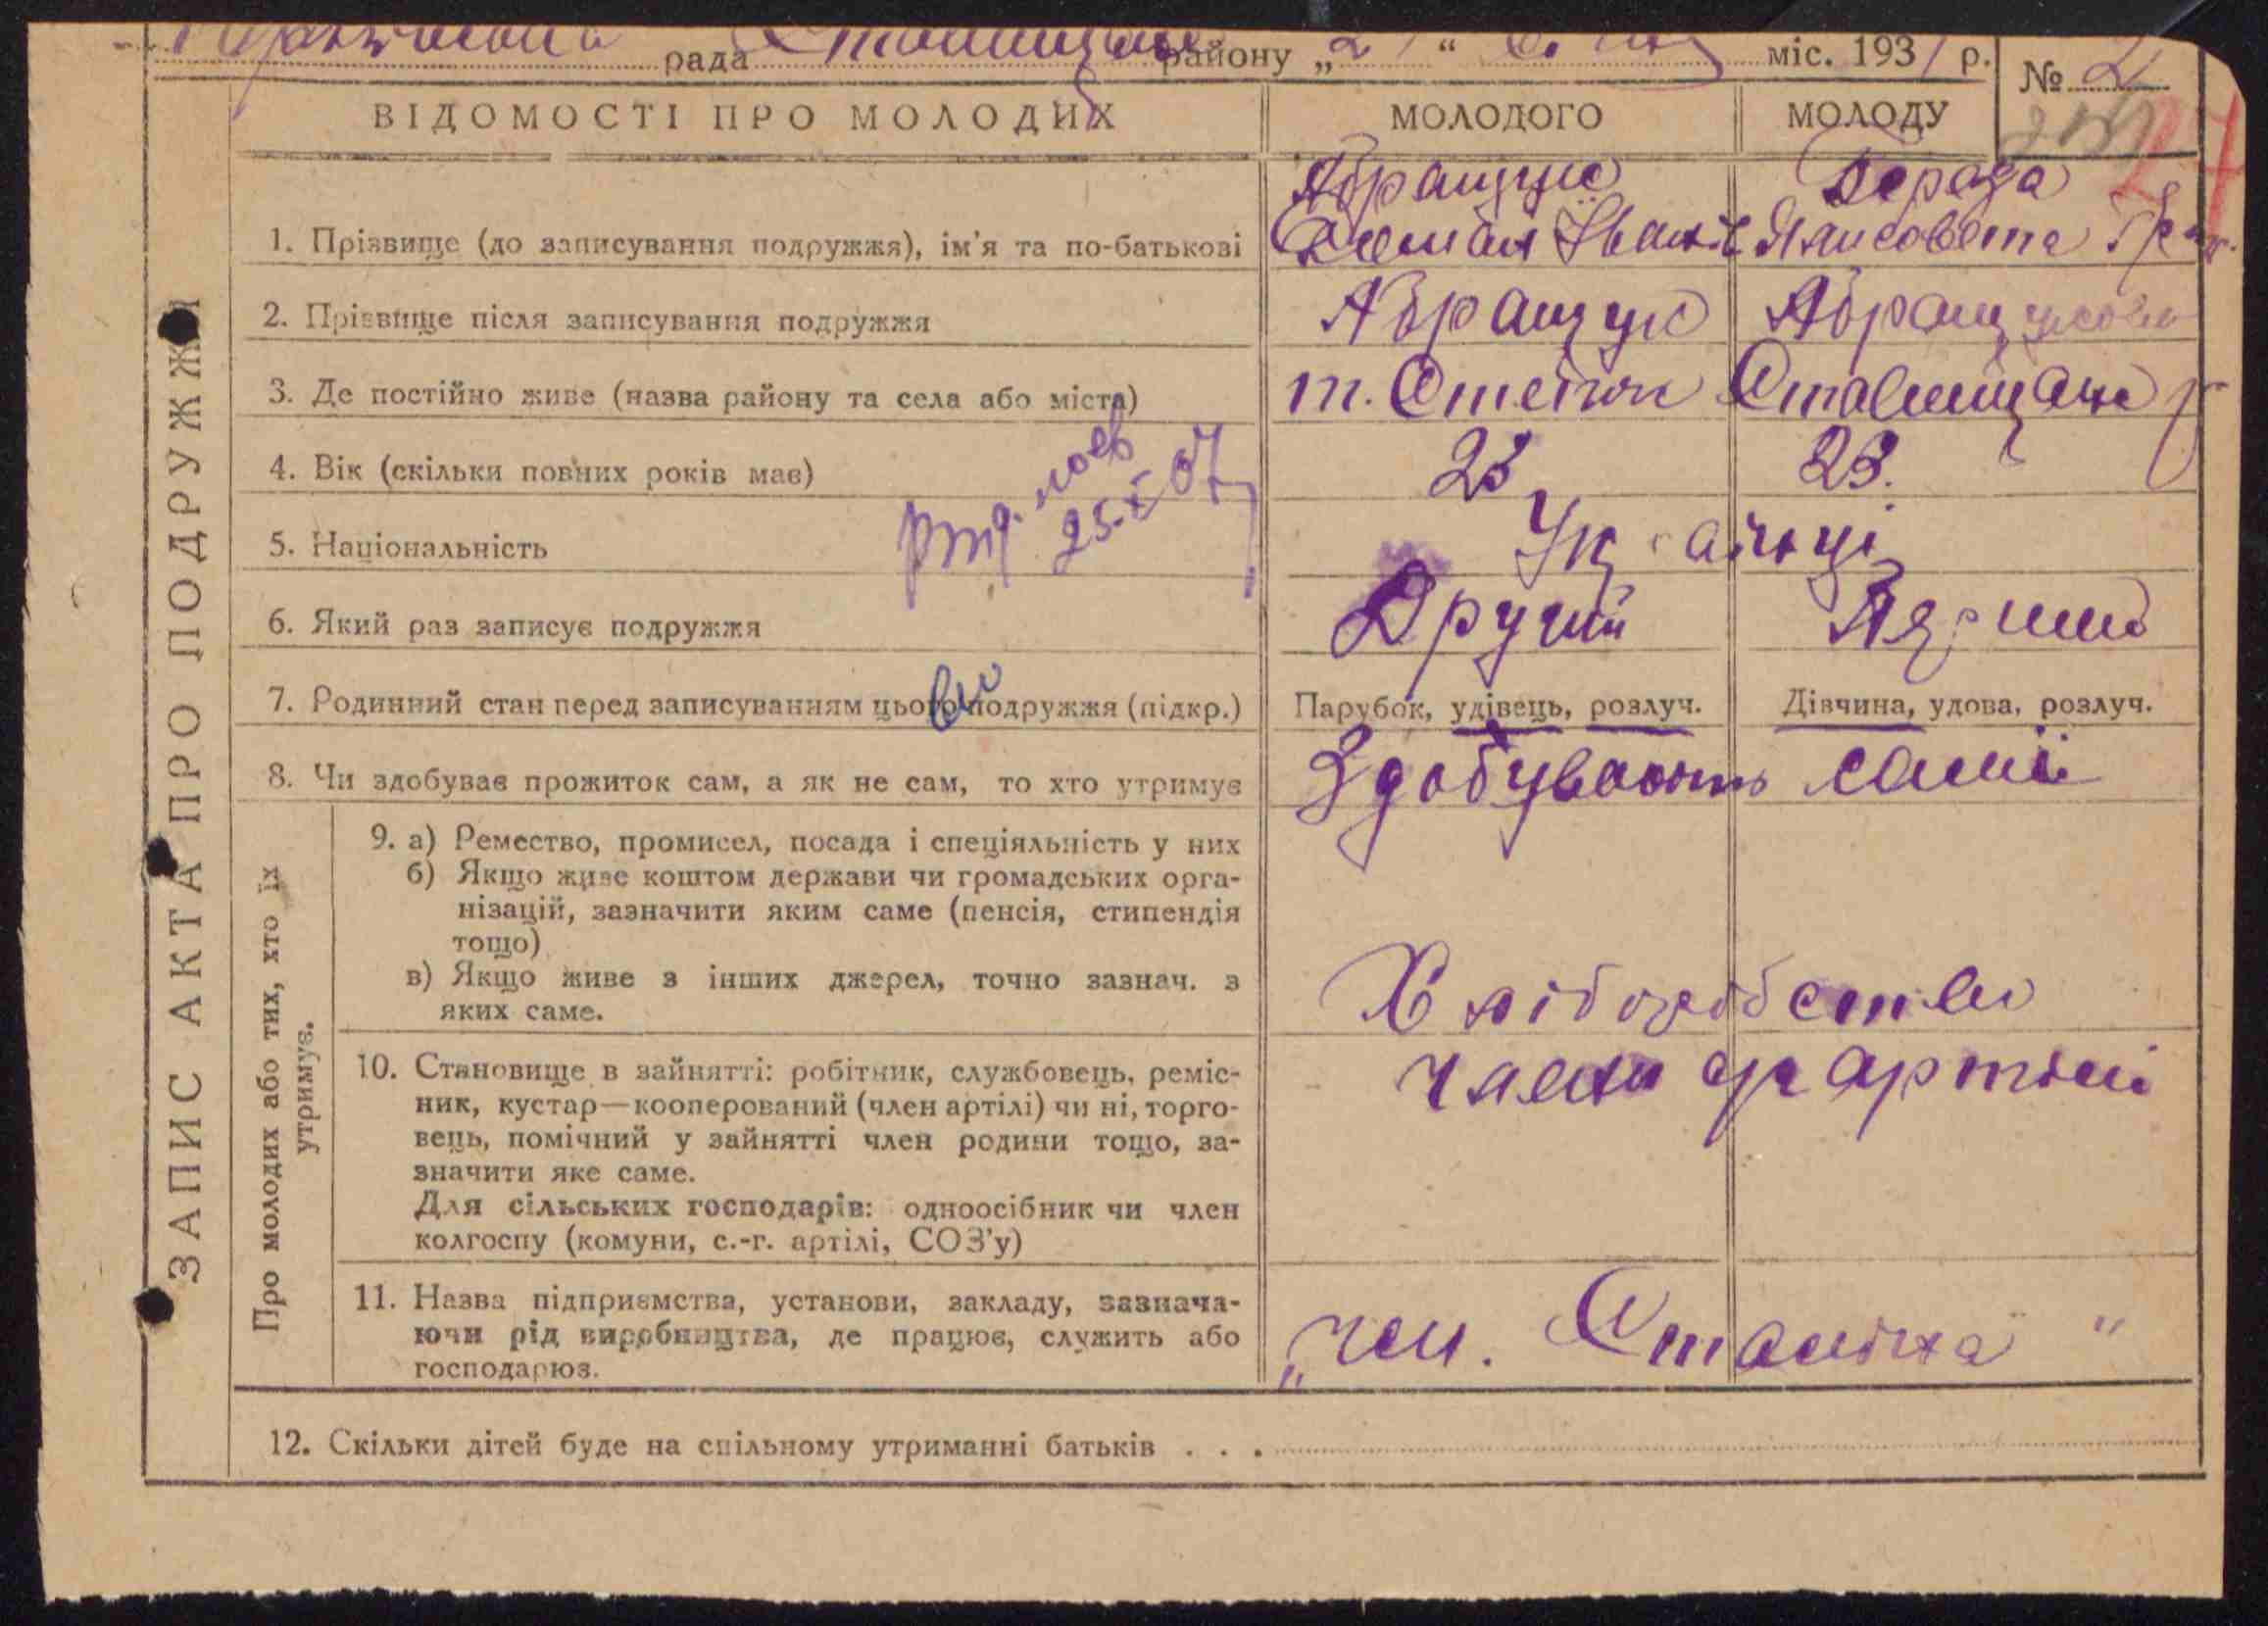 рада району „2 “ міс. 1931 р. № 2
ВІДОМОСТІ ПРО МОЛОДИХ МОЛОДОГО МОЛОДУ
Абращук
1. Прізвище (до записування подружжя), ім'я та по-батькові Демьян Іванів
2. Прізвище після записування подружжя Абращук Абращукова
3. Де постійно живе (назва району та села або міста) Ставищан р
4. Вік (скільки повних років має) 23 23.
25.XI 07
5. Національність Українці
6. Який раз записує подружжя Другий Перший
7. Родинний стан перед записуванням цього подружжя (підкр.) Парубок, удівець, розлуч. Дівчина, удова, розлуч.
8. Чи здобуває прожиток сам, а як не сам, то хто утримує Здобувають самиї
ЗАПИС АКТА ПРО ПОДРУЖЖЯ
Про молодих або тих, хто їх утримує.
9. а) Ремество, промисел, посада і спеціяльність у них
б) Якщо живе коштом держави чи громадських орга-
нізацій, зазначити яким саме (пенсія, стипендія
тощо)
в) Якщо живе з інших джерел, точно зазнач. з
яких саме.
Хліборобство
10. Становище в зайнятті: робітник, службовець, реміс-
ник, кустар—кооперований (член артілі) чи ні, торго-
вець, помічний у зайнятті член родини тощо, за-
значити яке саме.
Для сільських господарів: одноосібник чи член
колгоспу (комуни, с.-г. артілі, СОЗ'у)
члени артілі
11. Назва підприємства, установи, закладу, зазнача-
ючи рід виробництва, де працює, служить або
господарює.
„ім. Сталіна "
12. Скільки дітей буде на спільному утриманні батьків . . .